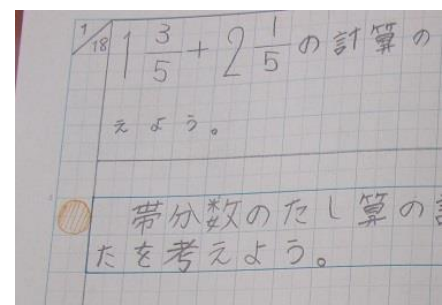 1/18
1 3/5 + 2 1/5 の計算の
えよう。
帯分数のたし算の
たを考えよう。